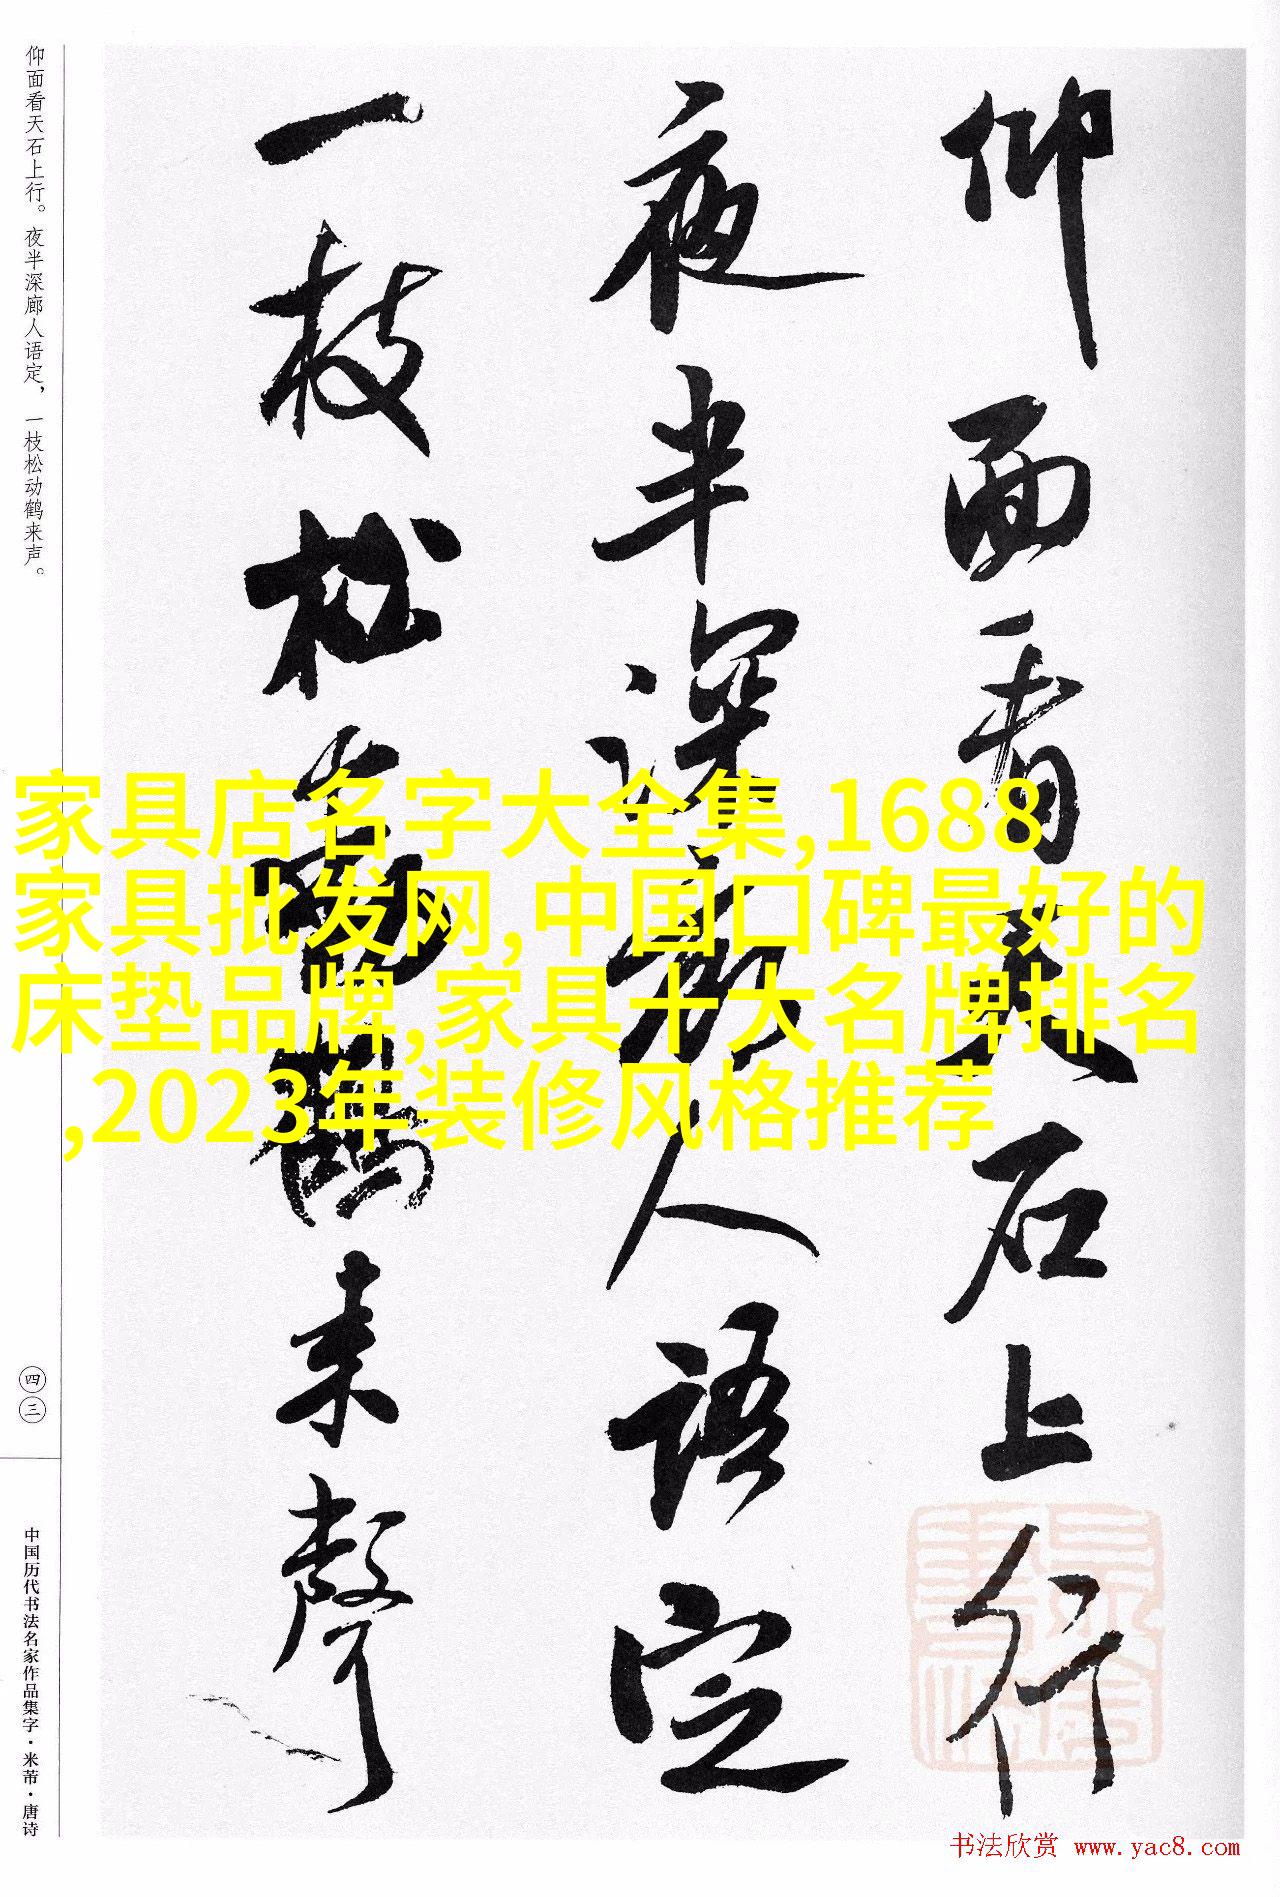 仰面看天石上行
夜半深廊人语定
一枝松动鹤来声
仰面看天石上行。夜半深廊人语定，一枝松动鹤来声。
四三
中国历代书法名家作品集字·米芾·唐诗
家具店名字大全集,1688
家具批发网,中国口碑最好的
床垫品牌,家具十大名牌排名
,2023年装修风格推荐
书法欣赏 www.yac8.com